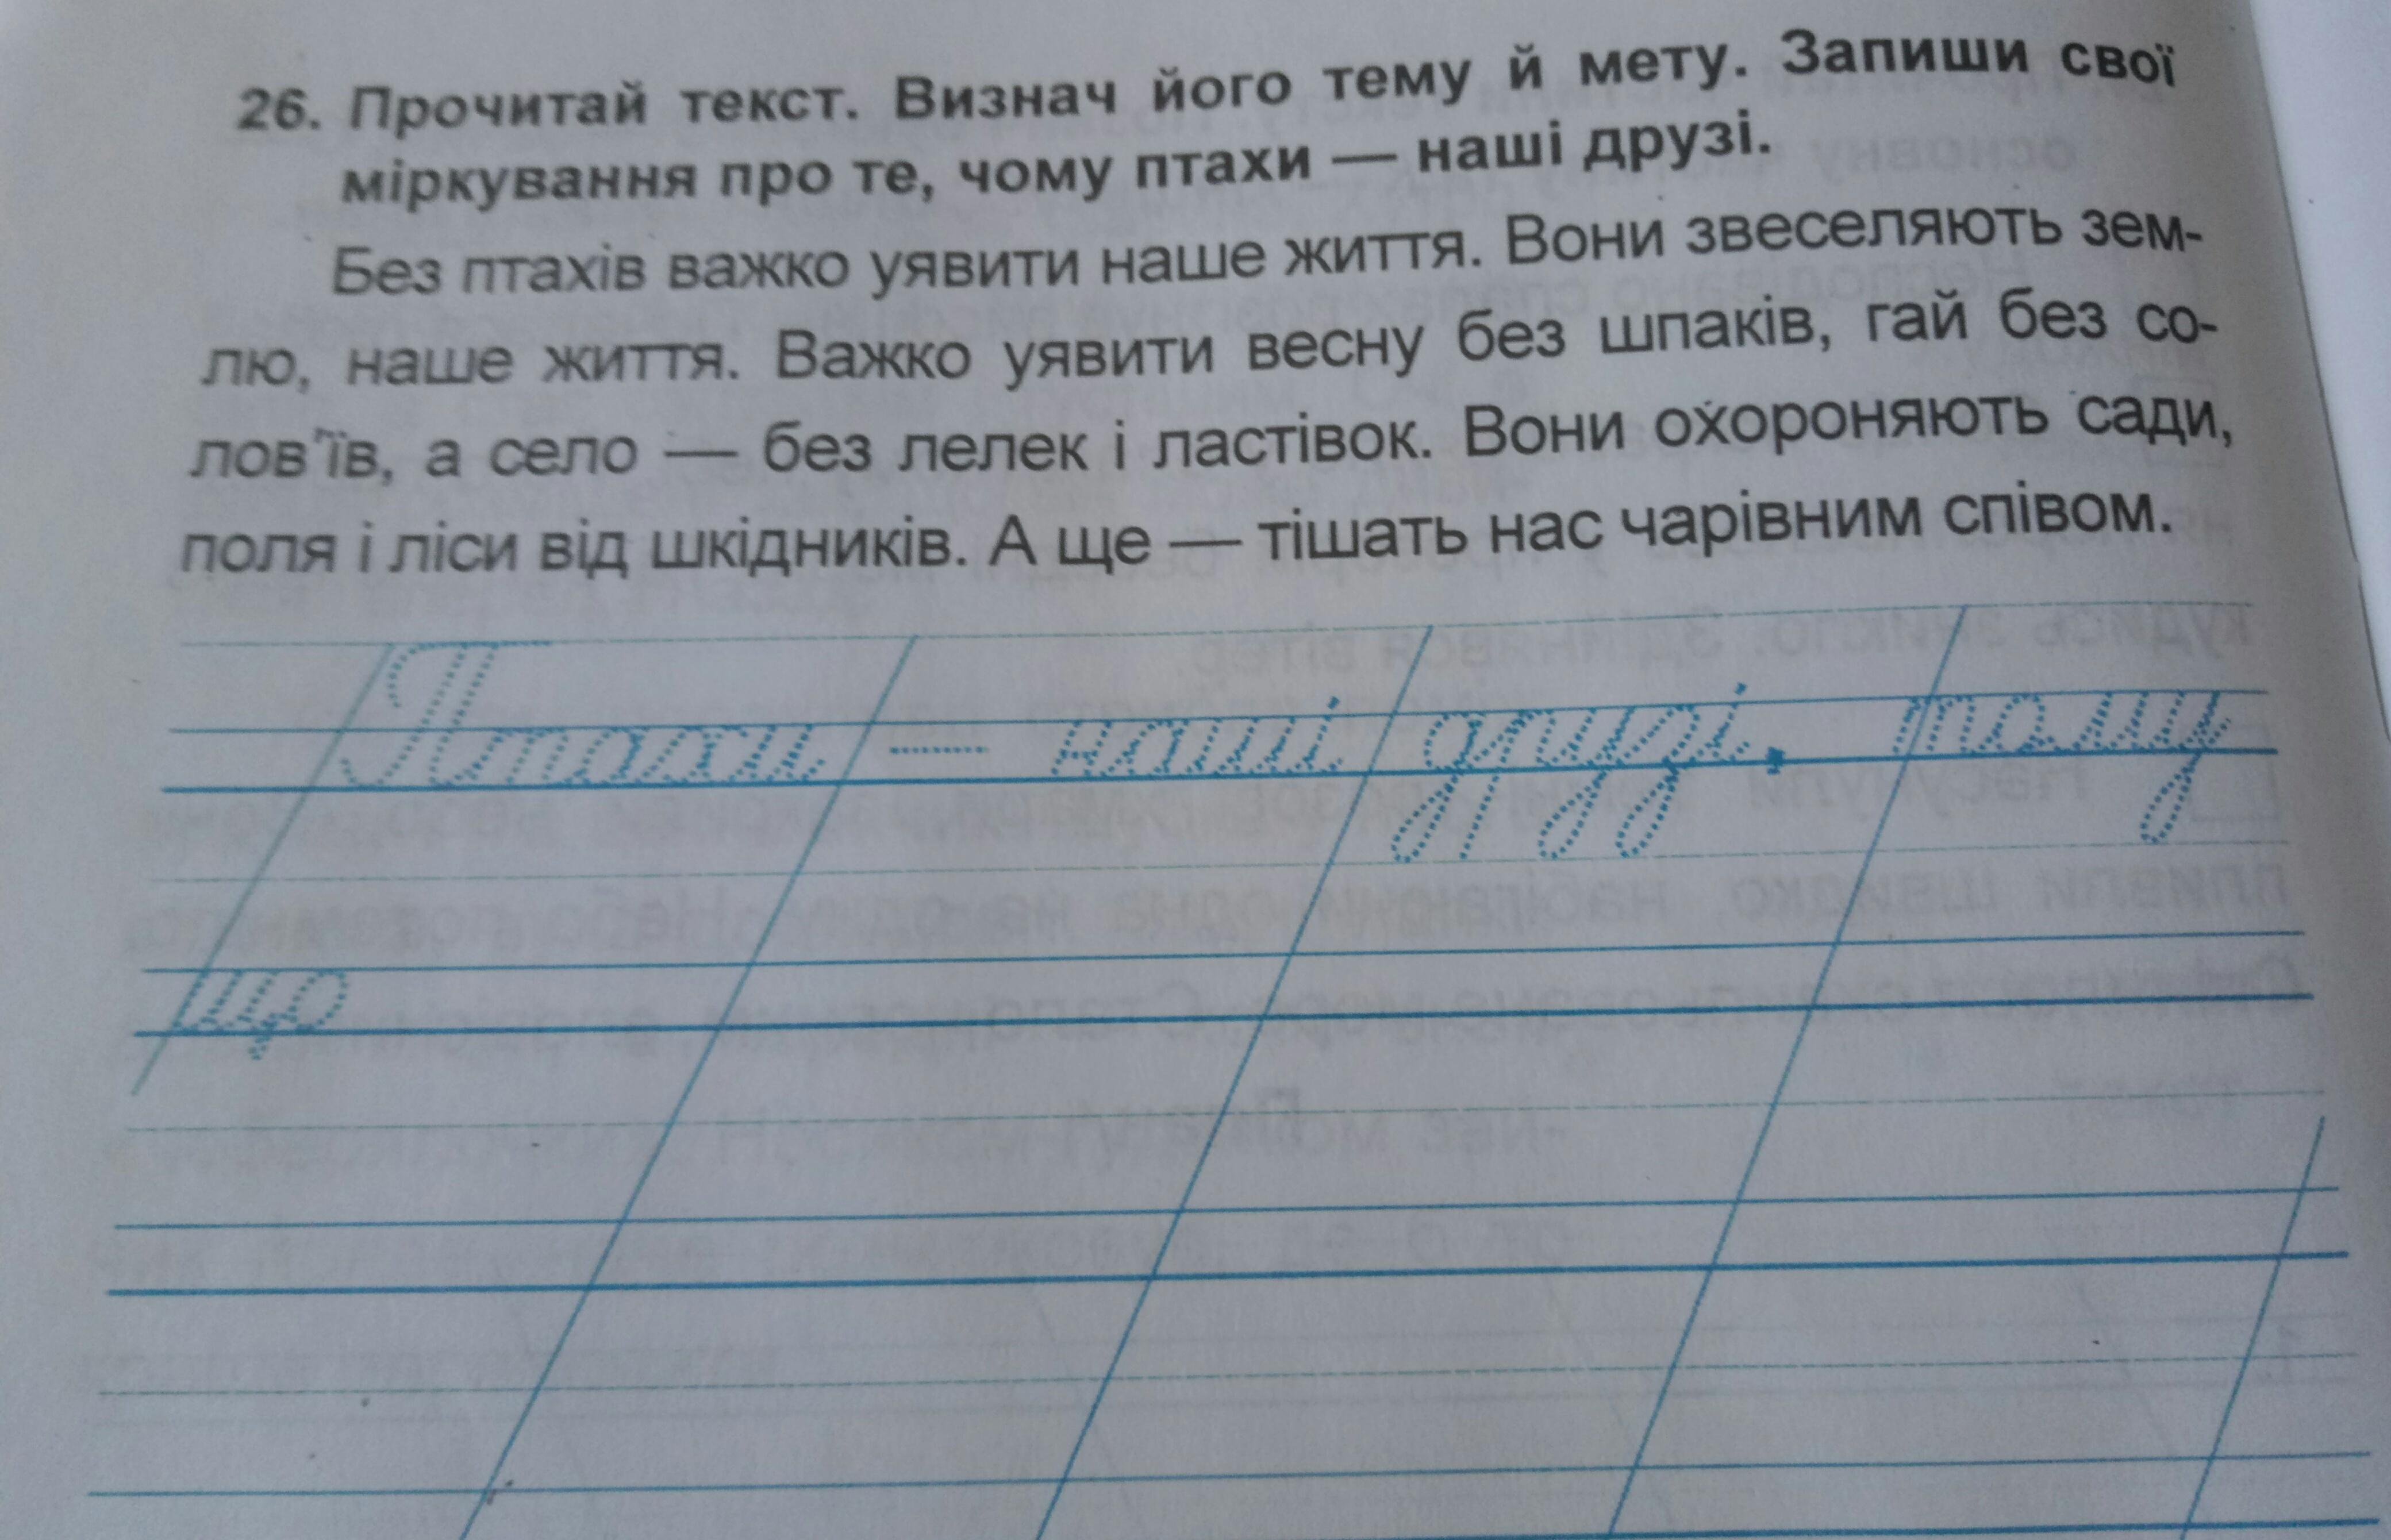 26. Прочитай текст. Визнач його тему й мету. Запиши свої
міркування про те, чому птахи — наші друзі.
Без птахів важко уявити наше життя. Вони звеселяють зем-
лю, наше життя. Важко уявити весну без шпаків, гай без со-
лов'їв, а село — без лелек і ластівок. Вони охороняють сади,
поля і ліси від шкідників. А ще — тішать нас чарівним співом.
Птахи — наші друзі, тому
що